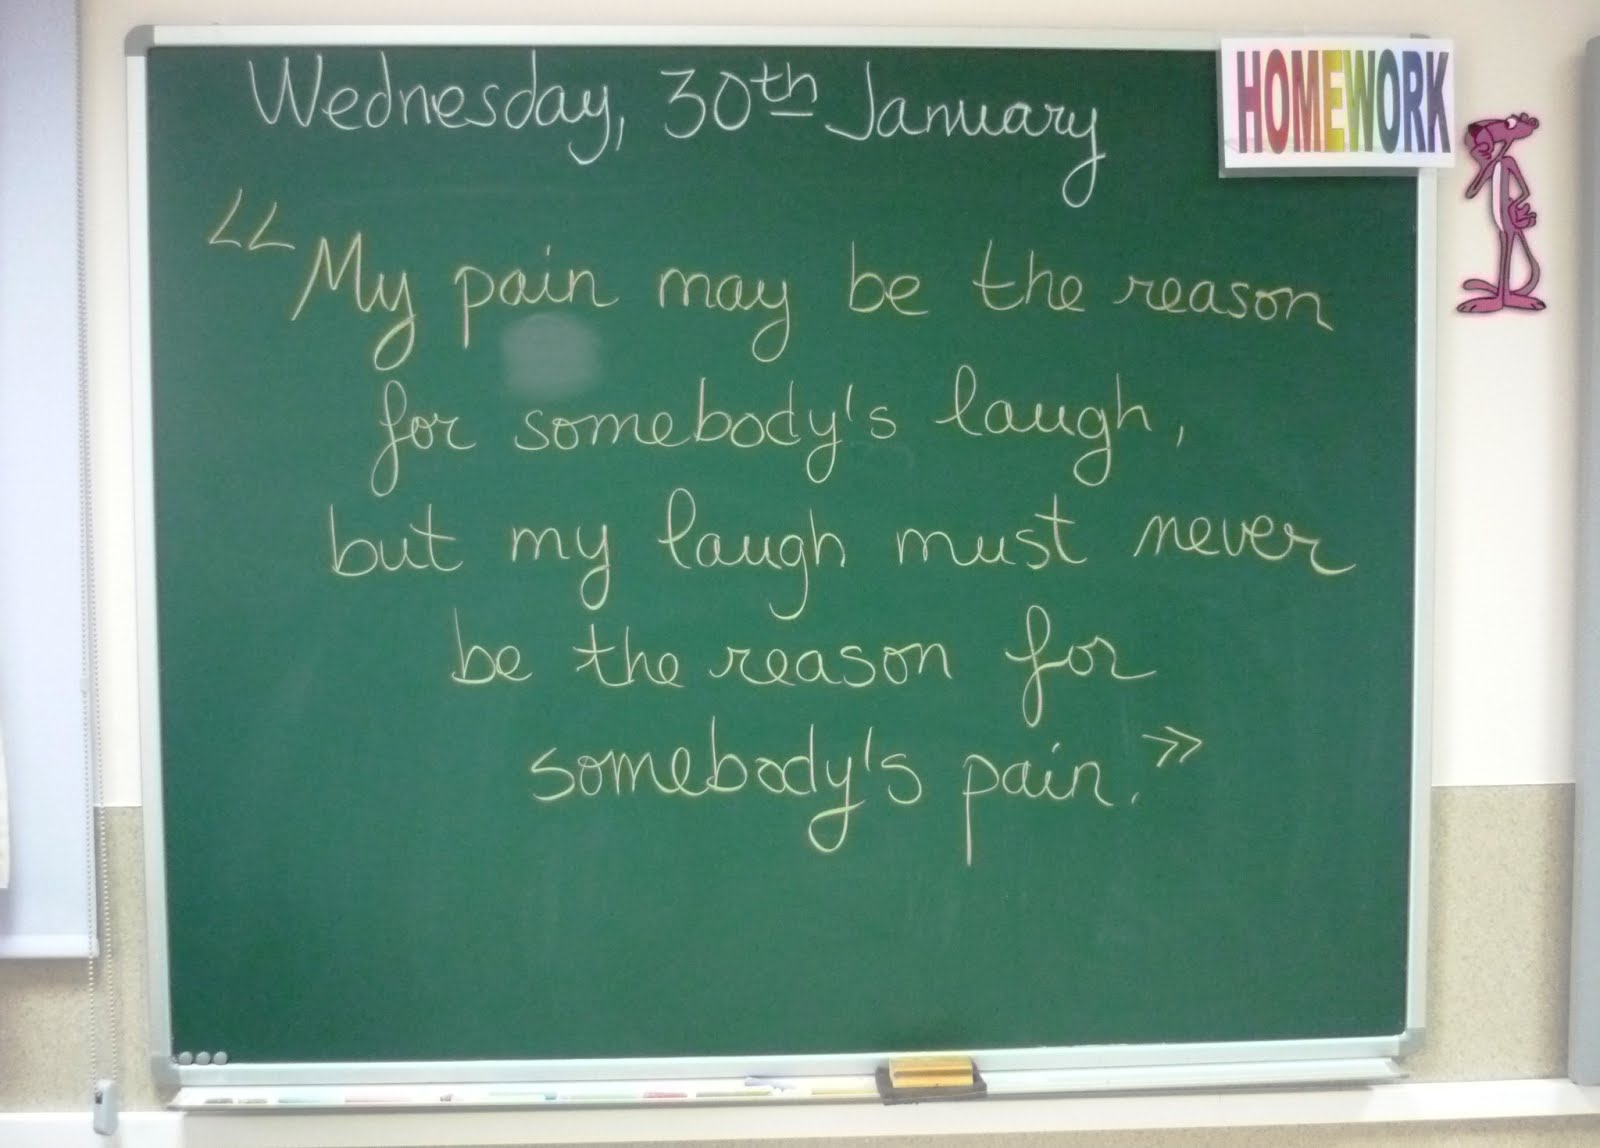 Wednesday, 30th January
HOMEWORK
« My pain may be the reason
for somebody's laugh,
but my laugh must never
be the reason for
somebody's pain. »